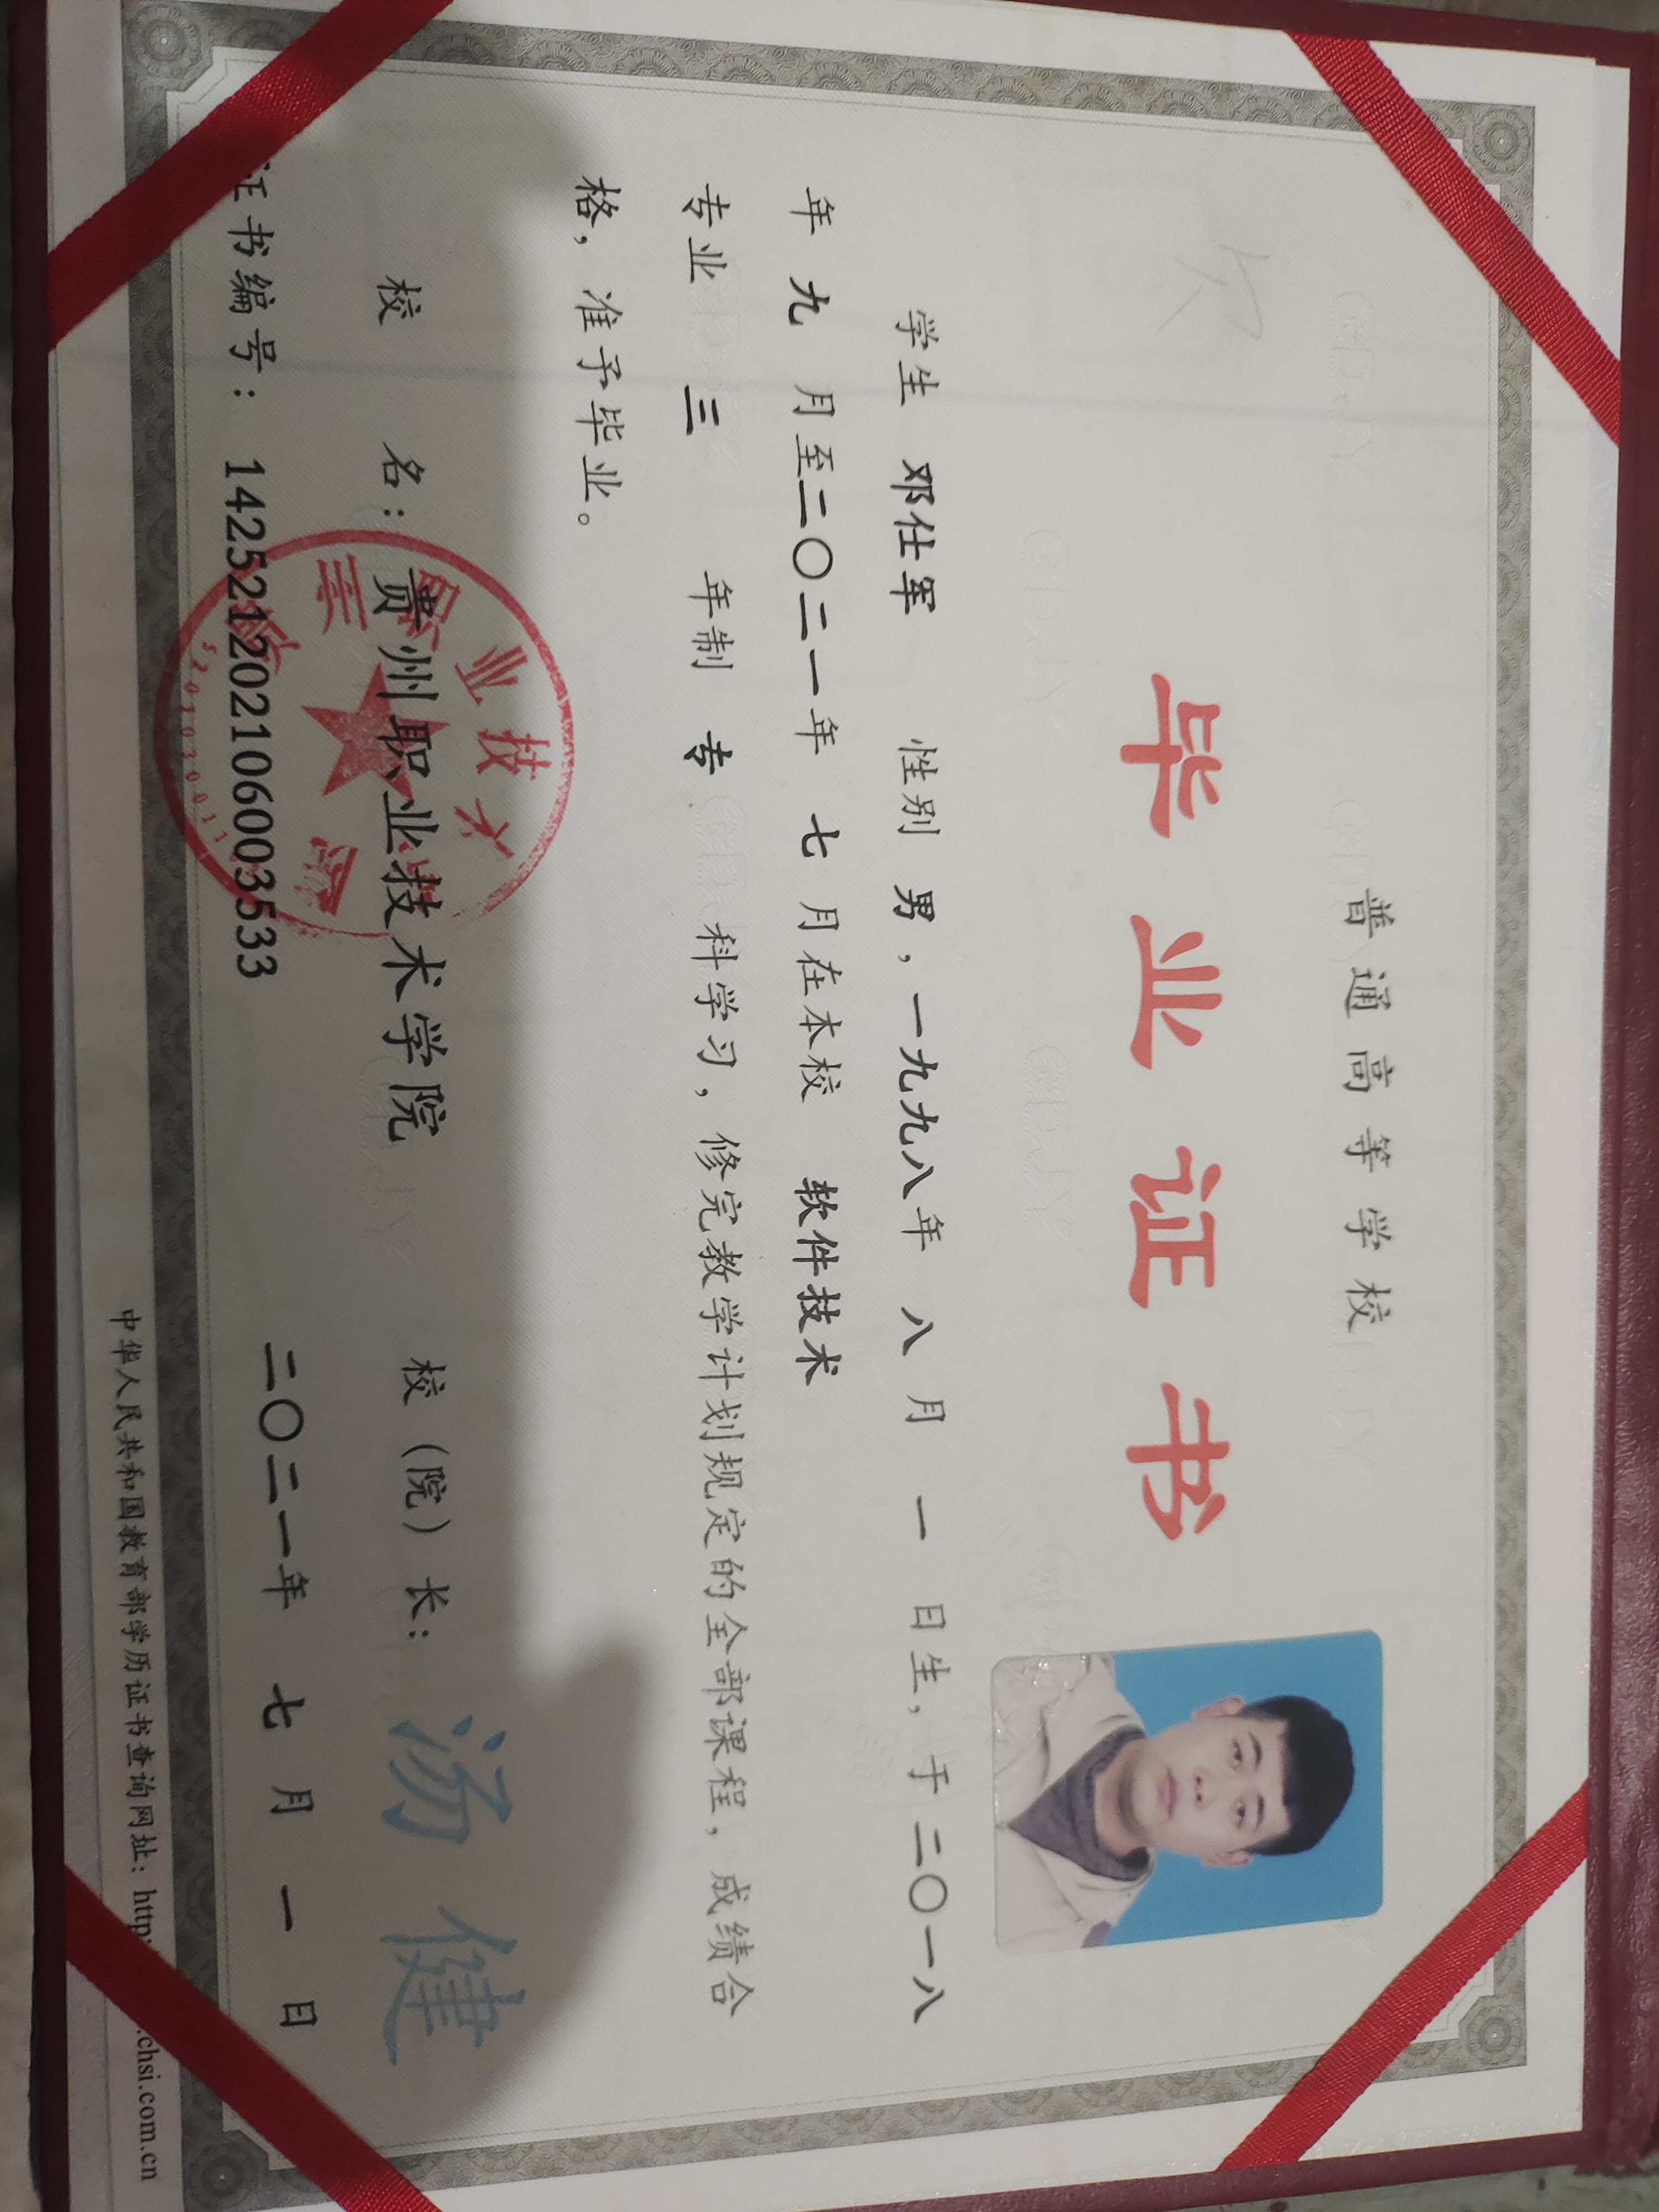 普通高等学校
毕业证书
学生 邓仕军 性别 男，一九九八年 八 月 一 日生，于二〇一八
年 九 月至二〇二一年 七 月在本校 软件技术
专业 三 年制 专 科学习，修完教学计划规定的全部课程，成绩合
格，准予毕业。
校 名：贵州职业技术学院 校（院）长：汤健
证书编号：142521202106003533 二〇二一年 七 月 一 日
中华人民共和国教育部学历证书查询网址：http: .chsi.com.cn